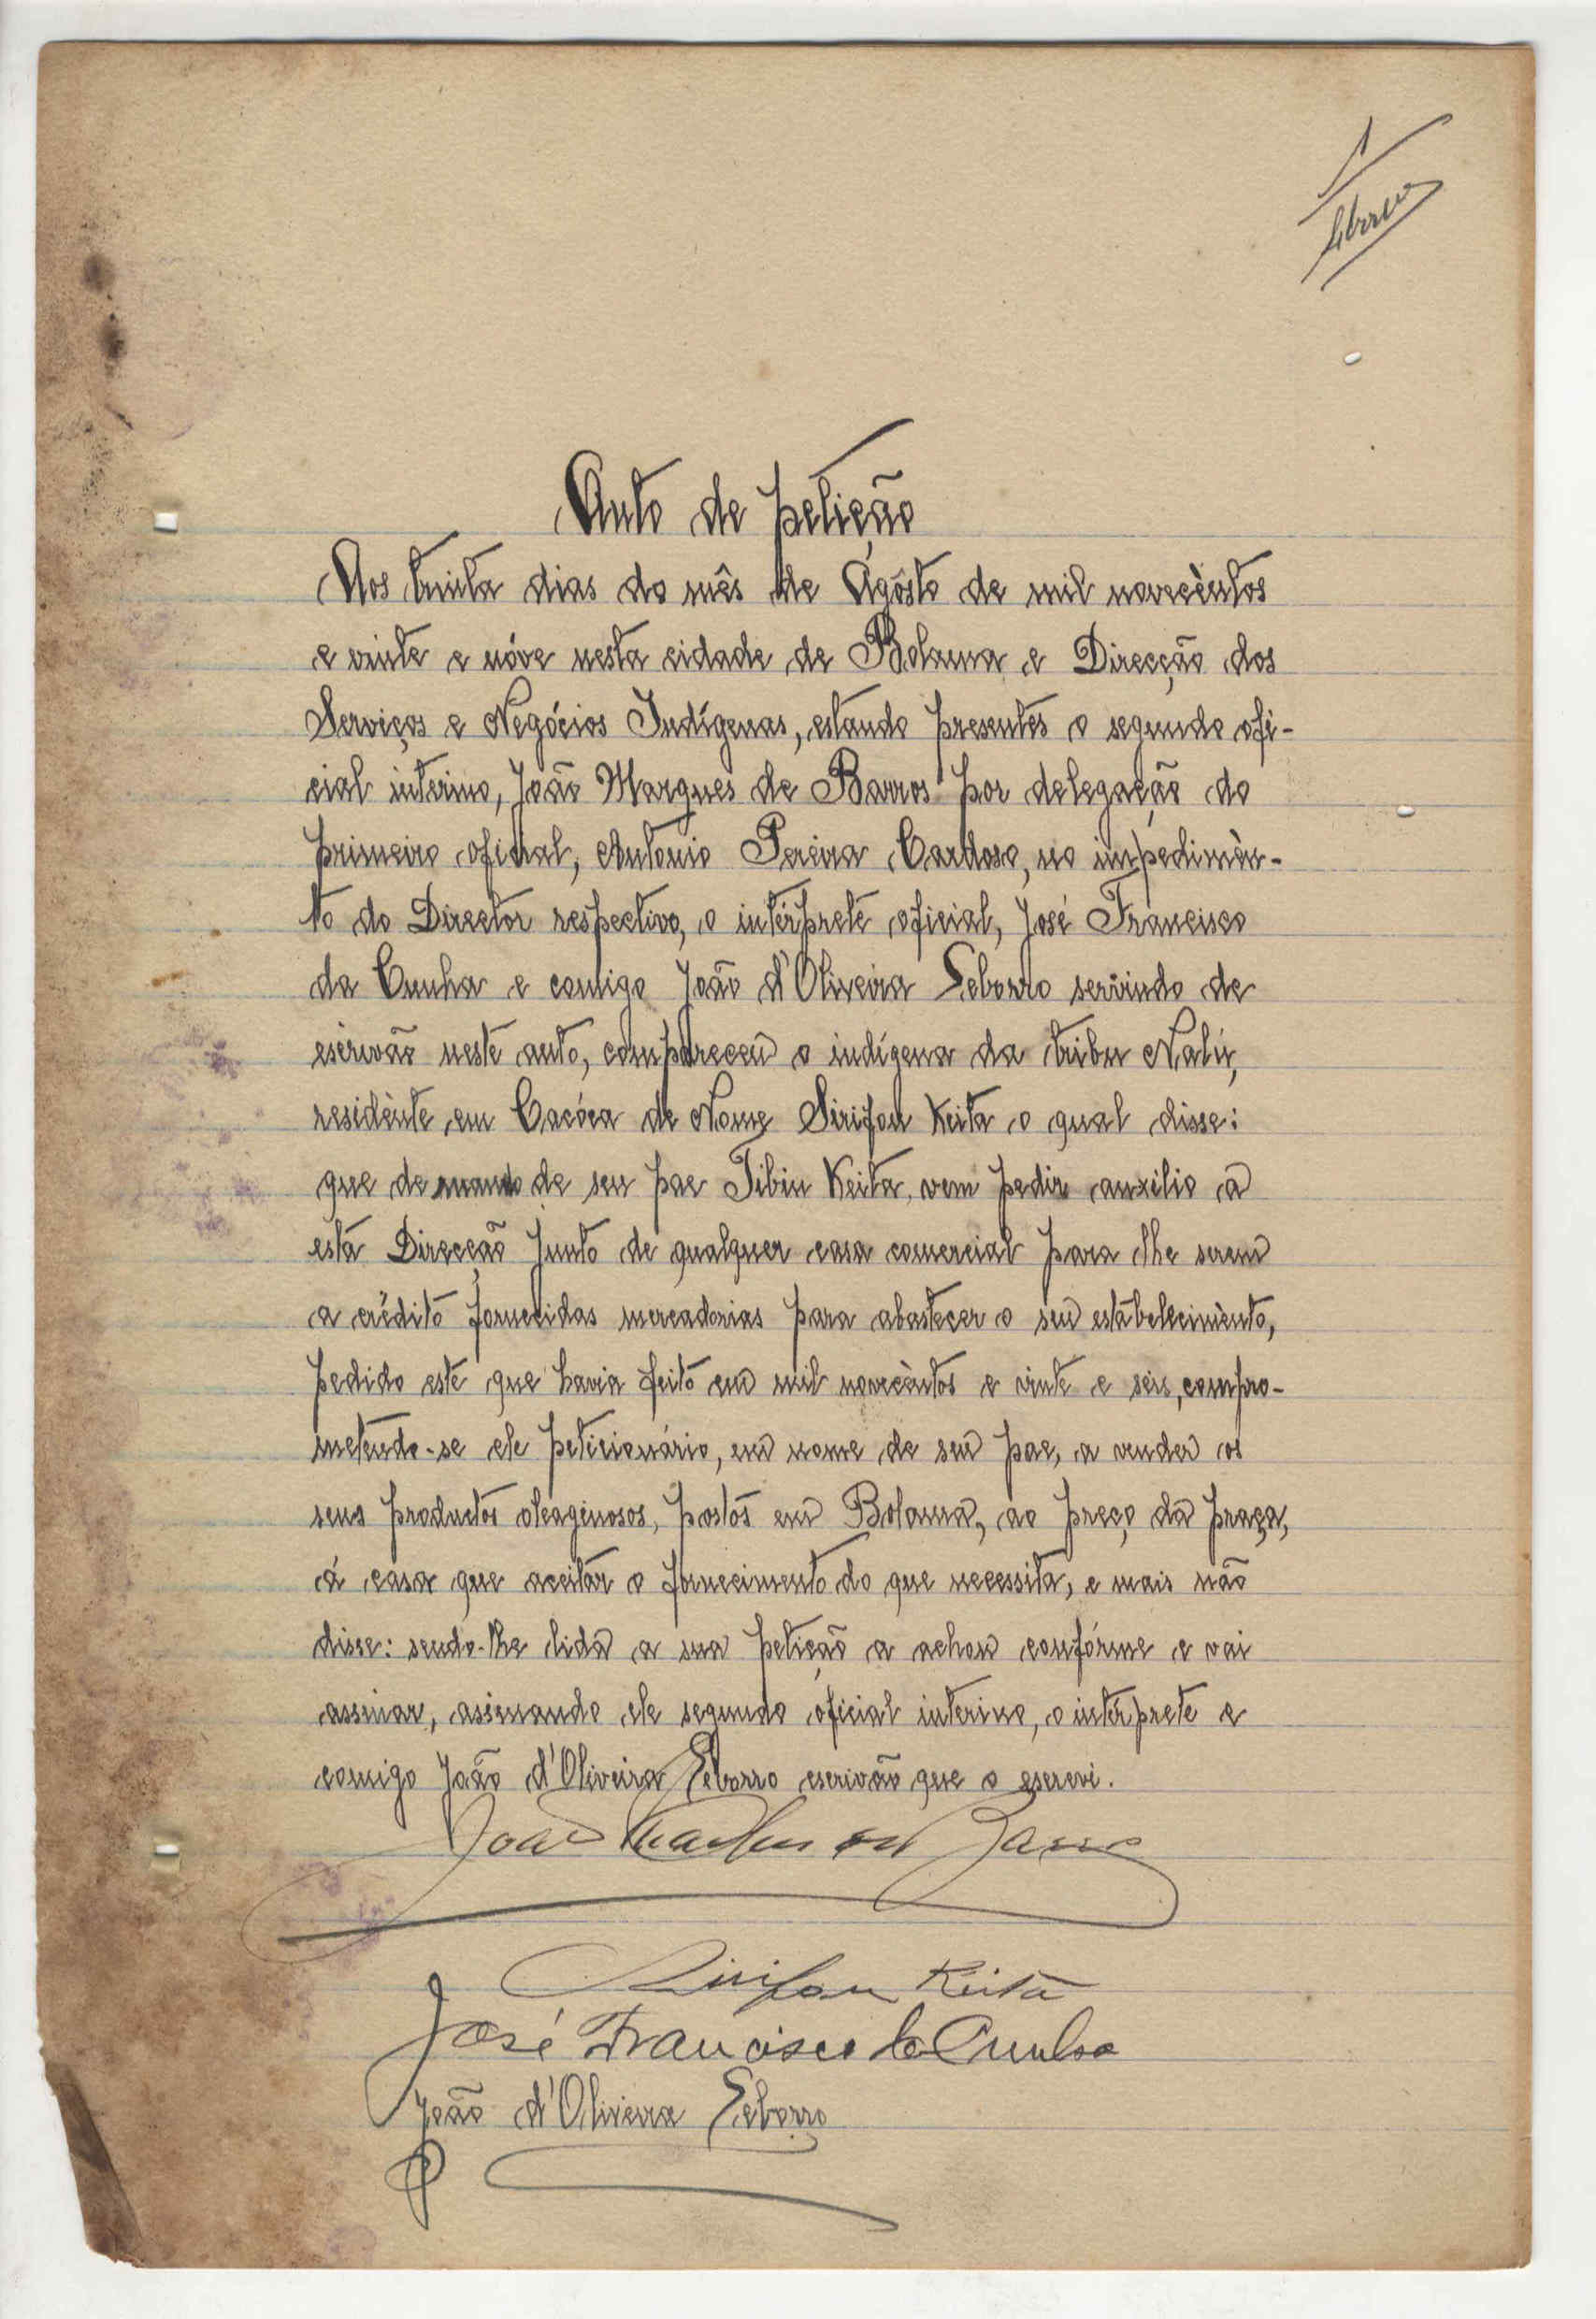 1
Seborro
Auto de petição
Aos trinta dias do mês de Agôsto de mil novecèntos
e vinte e nóve nesta cidade de Bolama e Direcção dos
Serviços e Negócios Indígenas, estando presentes o segundo ofi-
cial interino, João Marques de Barros por delegação do
primeiro oficial, Antonio Pereira Cardoso, no impedimèn-
to do Director respectivo, o intérprete oficial, José Francisco
da Cunha e comigo João d'Oliveira Seborro servindo de
escrivão neste auto, compareceu o indígena da tribu Nalú,
residènte em Cacóca de Nome Sirifou Keita o qual disse:
que de mando de seu pae Tibiu Keita, vem pedir auxilio a
esta Direcção junto de qualquer casa comercial para lhe serem
a crédito fornecidas mercadorias para abastecer o seu estabelecimènto,
pedido este que havia feito em mil novecèntos e vinte e seis, compro-
metendo-se ele peticionário, em nome de seu pae, a vender os
seus productos oleaginosos, postos em Bolama, ao preço da praça,
á casa que aceitar o fornecimento do que necessita, e mais não
disse: sendo-lhe lida a sua petição a achou confórme e vai
assinar, assinando ele segundo oficial interino, o intérprete e
comigo João d'Oliveira Seborro escrivão que o escrevi.
João Marques de Barros
Sirifou Keita
José Francisco da Cunha
João d'Oliveira Seborro